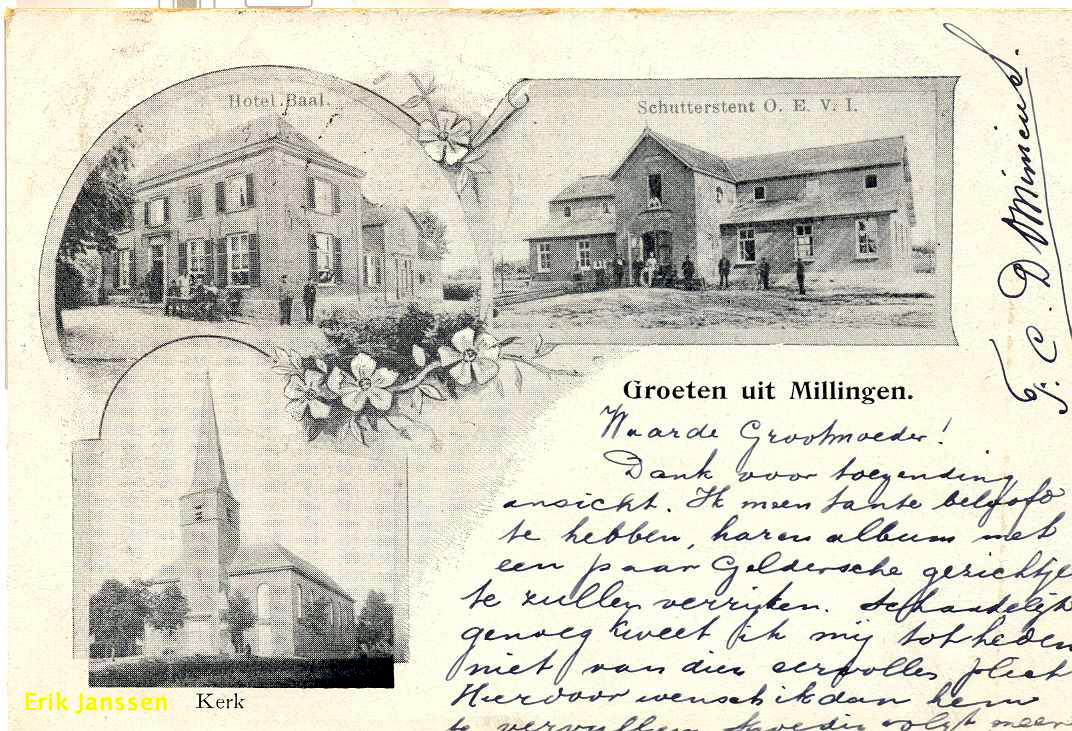 Hotel Baal.
Schutterstent O. E. V. I.
Groeten uit Millingen.
Waarde Grootmoeder!
Dank voor toezending
ansicht. Ik meen tante beloofd
te hebben, haren album met
een paar Geldersche gezichtje
te zullen verrijken. Schandelijk
genoeg kweet ik mij tot heden
niet van dien eervollen plicht
Hiervoor wensch ik dan hem
te vervullen Spoedig volgt meer
Kerk
Erik Janssen